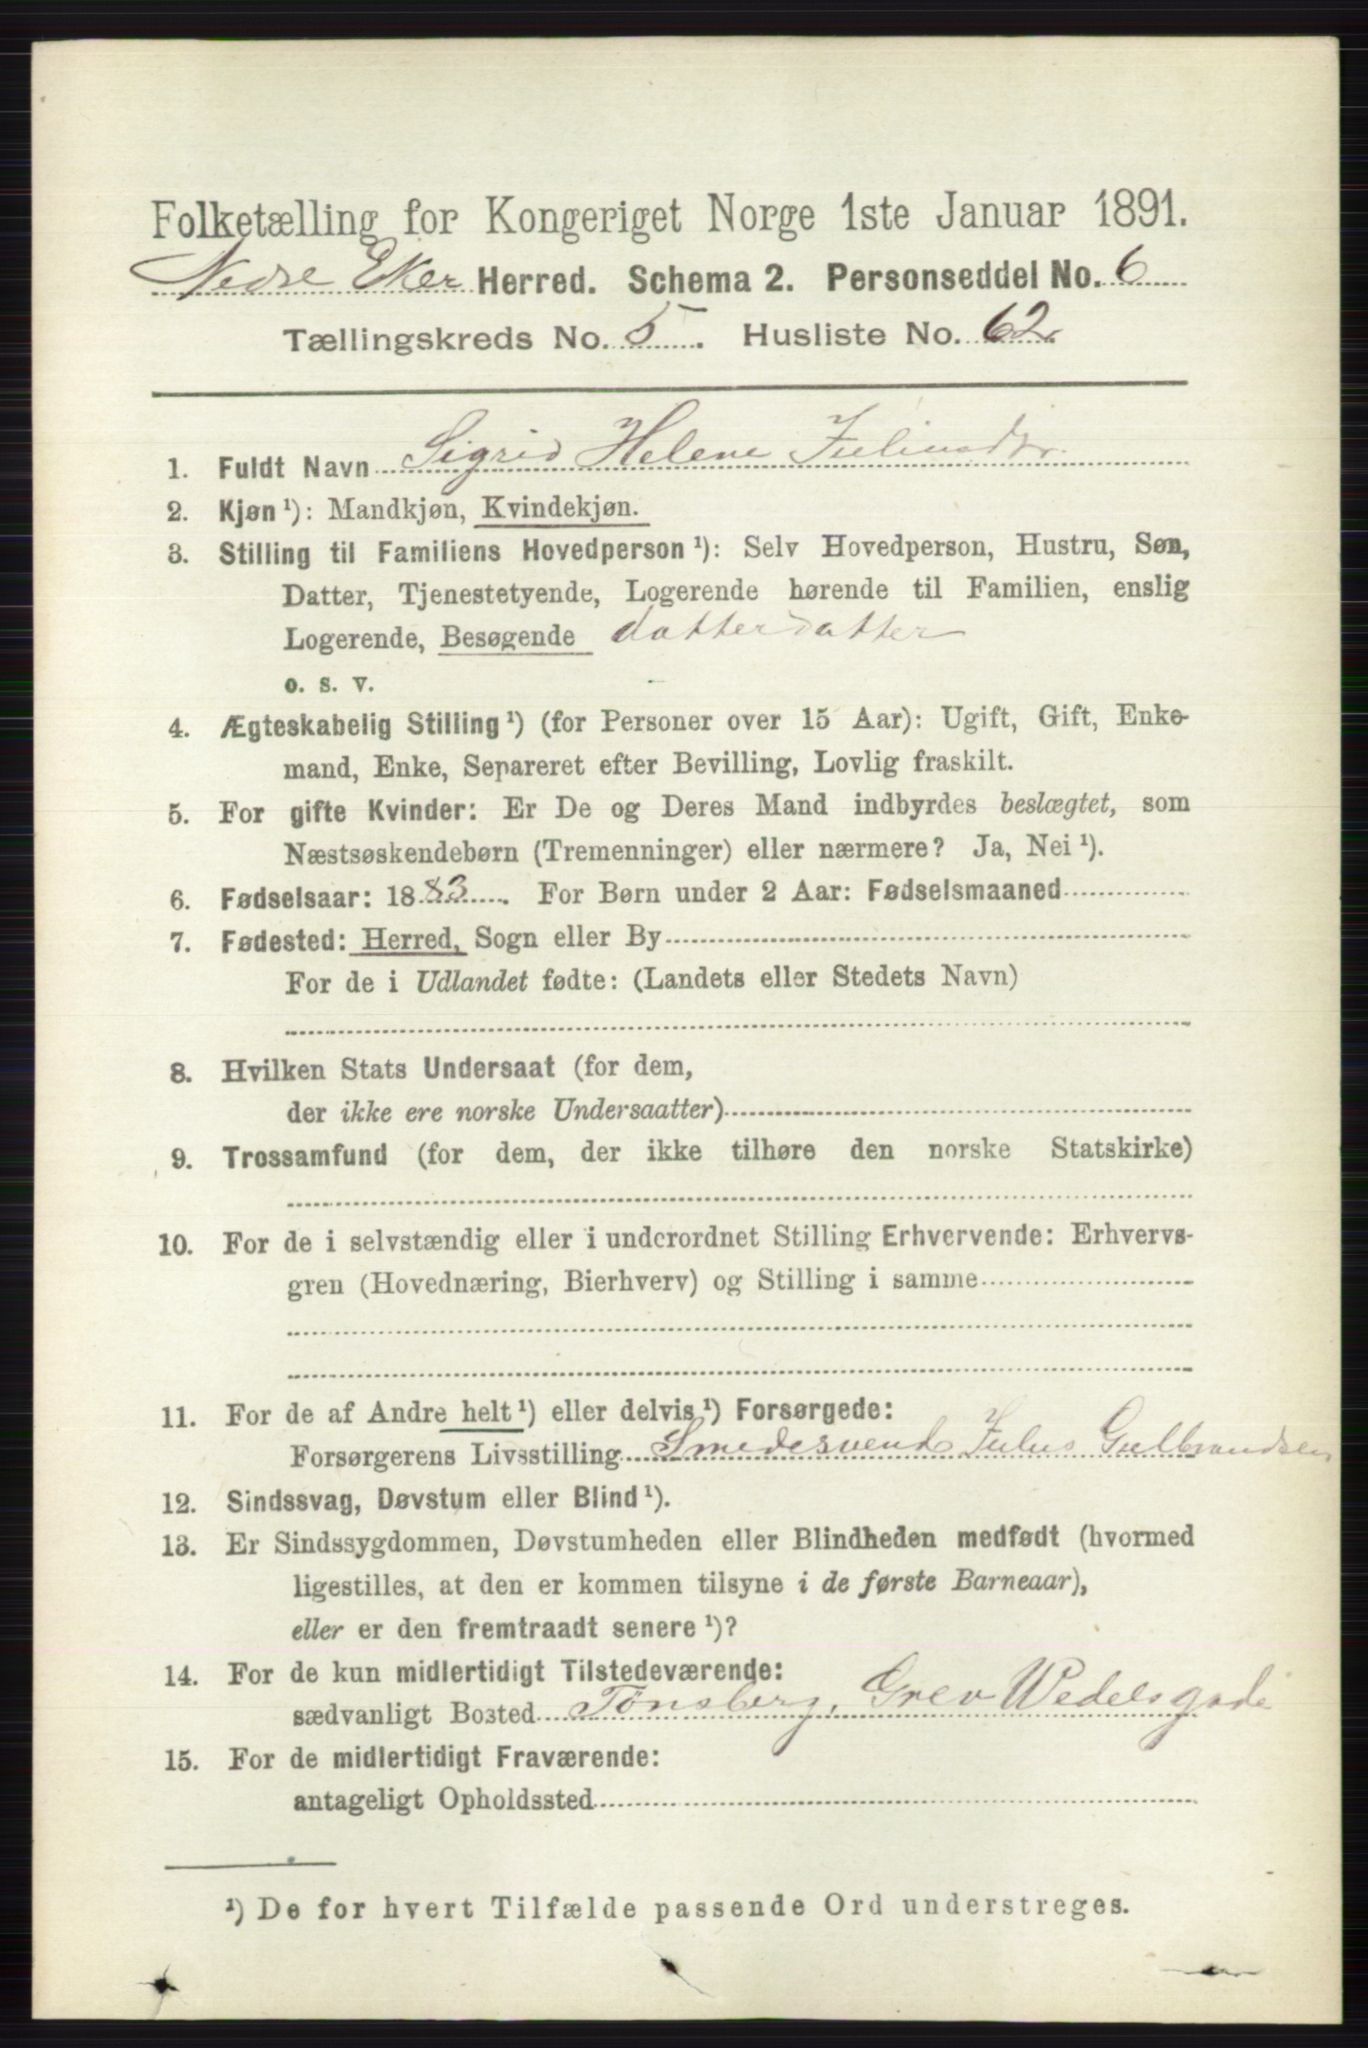 Folketælling for Kongeriget Norge 1ste Januar 1891.
Nedre Eker Herred. Schema 2. Personseddel No. 6
Tællingskreds No. 5. Husliste No. 62
1. Fuldt Navn Sigrid Helene Juliusdtr.
2. Kjøn ¹): Mandkjøn, Kvindekjøn.
3. Stilling til Familiens Hovedperson ¹): Selv Hovedperson, Hustru, Søn,
Datter, Tjenestetyende, Logerende hørende til Familien, enslig
Logerende, Besøgende datterdatter
o. s. v.
4. Ægteskabelig Stilling ¹) (for Personer over 15 Aar): Ugift, Gift, Enke-
mand, Enke, Separeret efter Bevilling, Lovlig fraskilt.
5. For gifte Kvinder: Er De og Deres Mand indbyrdes beslægtet, som
Næstsøskendebørn (Tremenninger) eller nærmere? Ja, Nei ¹).
6. Fødselsaar: 1883. For Børn under 2 Aar: Fødselsmaaned
7. Fødested: Herred, Sogn eller By
For de i Udlandet fødte: (Landets eller Stedets Navn)
8. Hvilken Stats Undersaat (for dem,
der ikke ere norske Undersaatter)
9. Trossamfund (for dem, der ikke tilhøre den norske Statskirke)
10. For de i selvstændig eller i underordnet Stilling Erhvervende: Erhvervs-
gren (Hovednæring, Bierhverv) og Stilling i samme
11. For de af Andre helt ¹) eller delvis ¹) Forsørgede:
Forsørgerens Livsstilling Smedesvend Julus Gulbrandsen
12. Sindssvag, Døvstum eller Blind ¹).
13. Er Sindssygdommen, Døvstumheden eller Blindheden medfødt (hvormed
ligestilles, at den er kommen tilsyne i de første Barneaar),
eller er den fremtraadt senere ¹)?
14. For de kun midlertidigt Tilstedeværende:
sædvanligt Bosted Tønsberg, Grev Wedelsgade
15. For de midlertidigt Fraværende:
antageligt Opholdssted
¹) De for hvert Tilfælde passende Ord understreges.